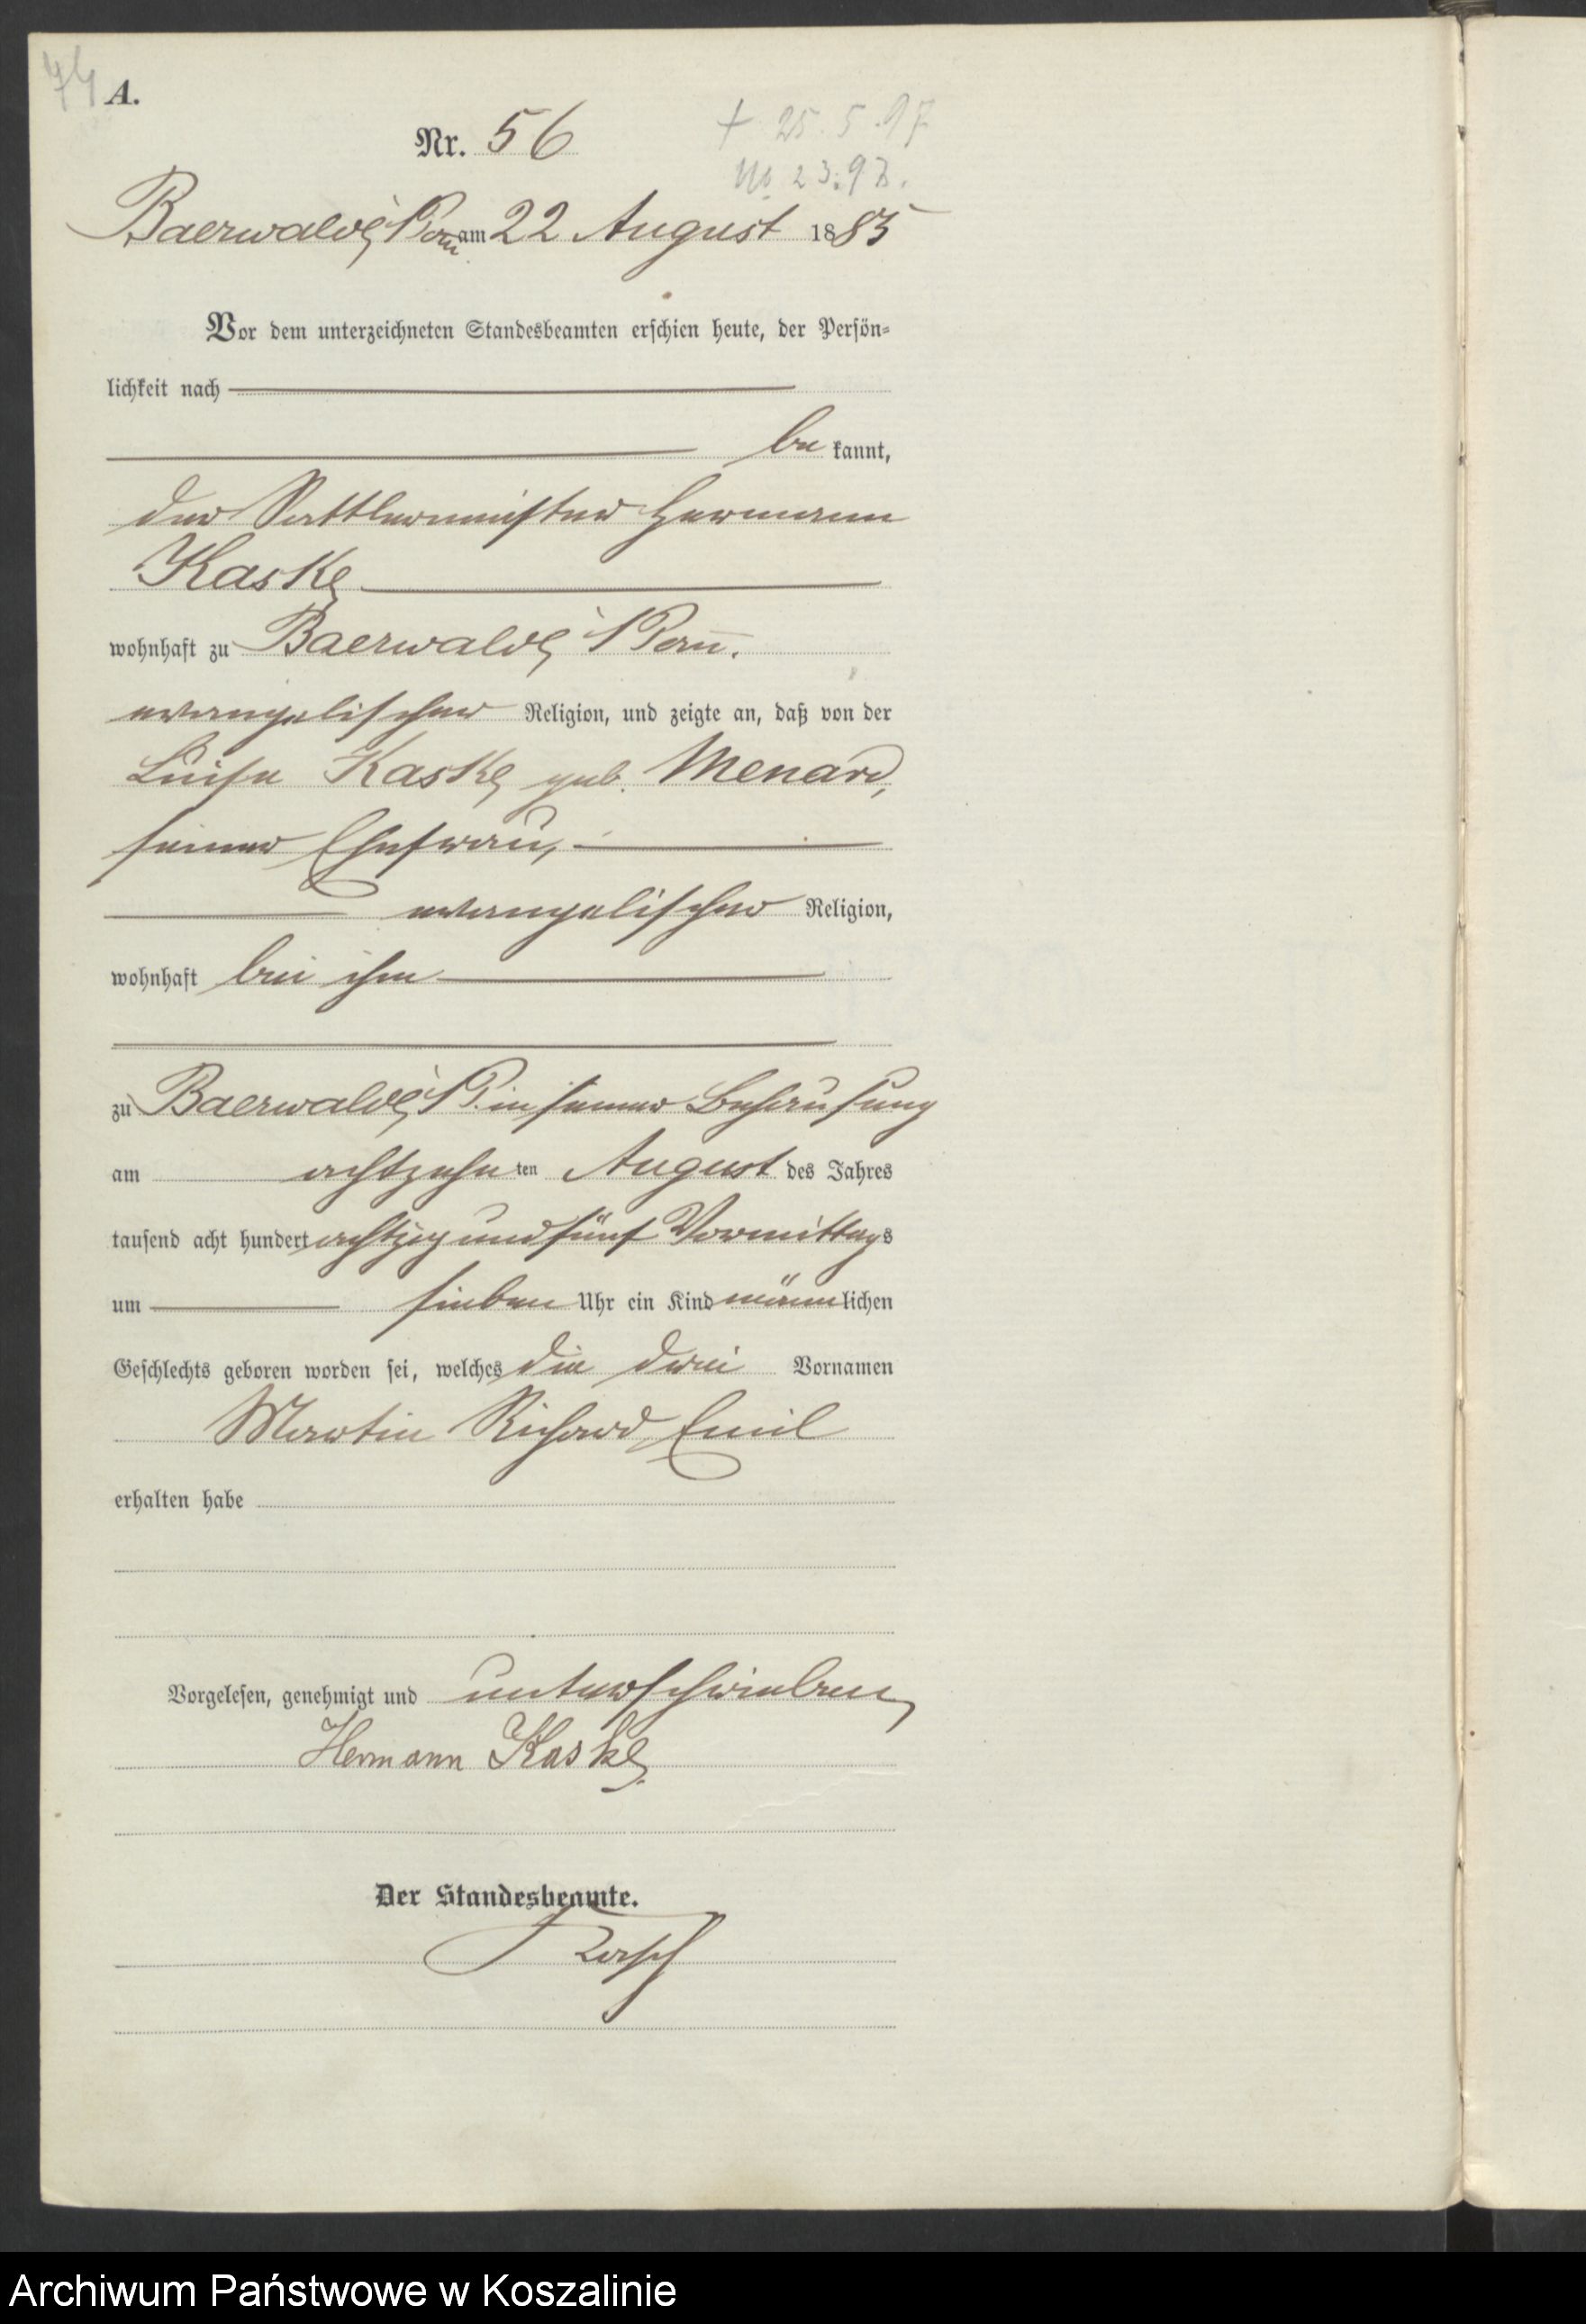 74 A.
Nr. 56
+ 25.5.97
No 23.97.
Baerwalde i/Pom am 22 August 1885
Vor dem unterzeichneten Standesbeamten erschien heute, der Persön-
lichkeit nach
be kannt,
der Sattlermeister Hermann
Kaske
wohnhaft zu Baerwalde i/Pom.
evangelischer Religion, und zeigte an, daß von der
Luise Kaske geb. Menard,
seiner Ehefrau,
evangelischer Religion,
wohnhaft bei ihm
zu Baerwalde i/P. in seiner Behausung
am achtzehn ten August des Jahres
tausend acht hundert achtzig und fünf Vormittags
um sieben Uhr ein Kind männlichen
Geschlechts geboren worden sei, welches die drei Vornamen
Martin Richard Emil
erhalten habe
Vorgelesen, genehmigt und unterschrieben
Hermann Kaske
Der Standesbeamte.
Archiwum Państwowe w Koszalinie